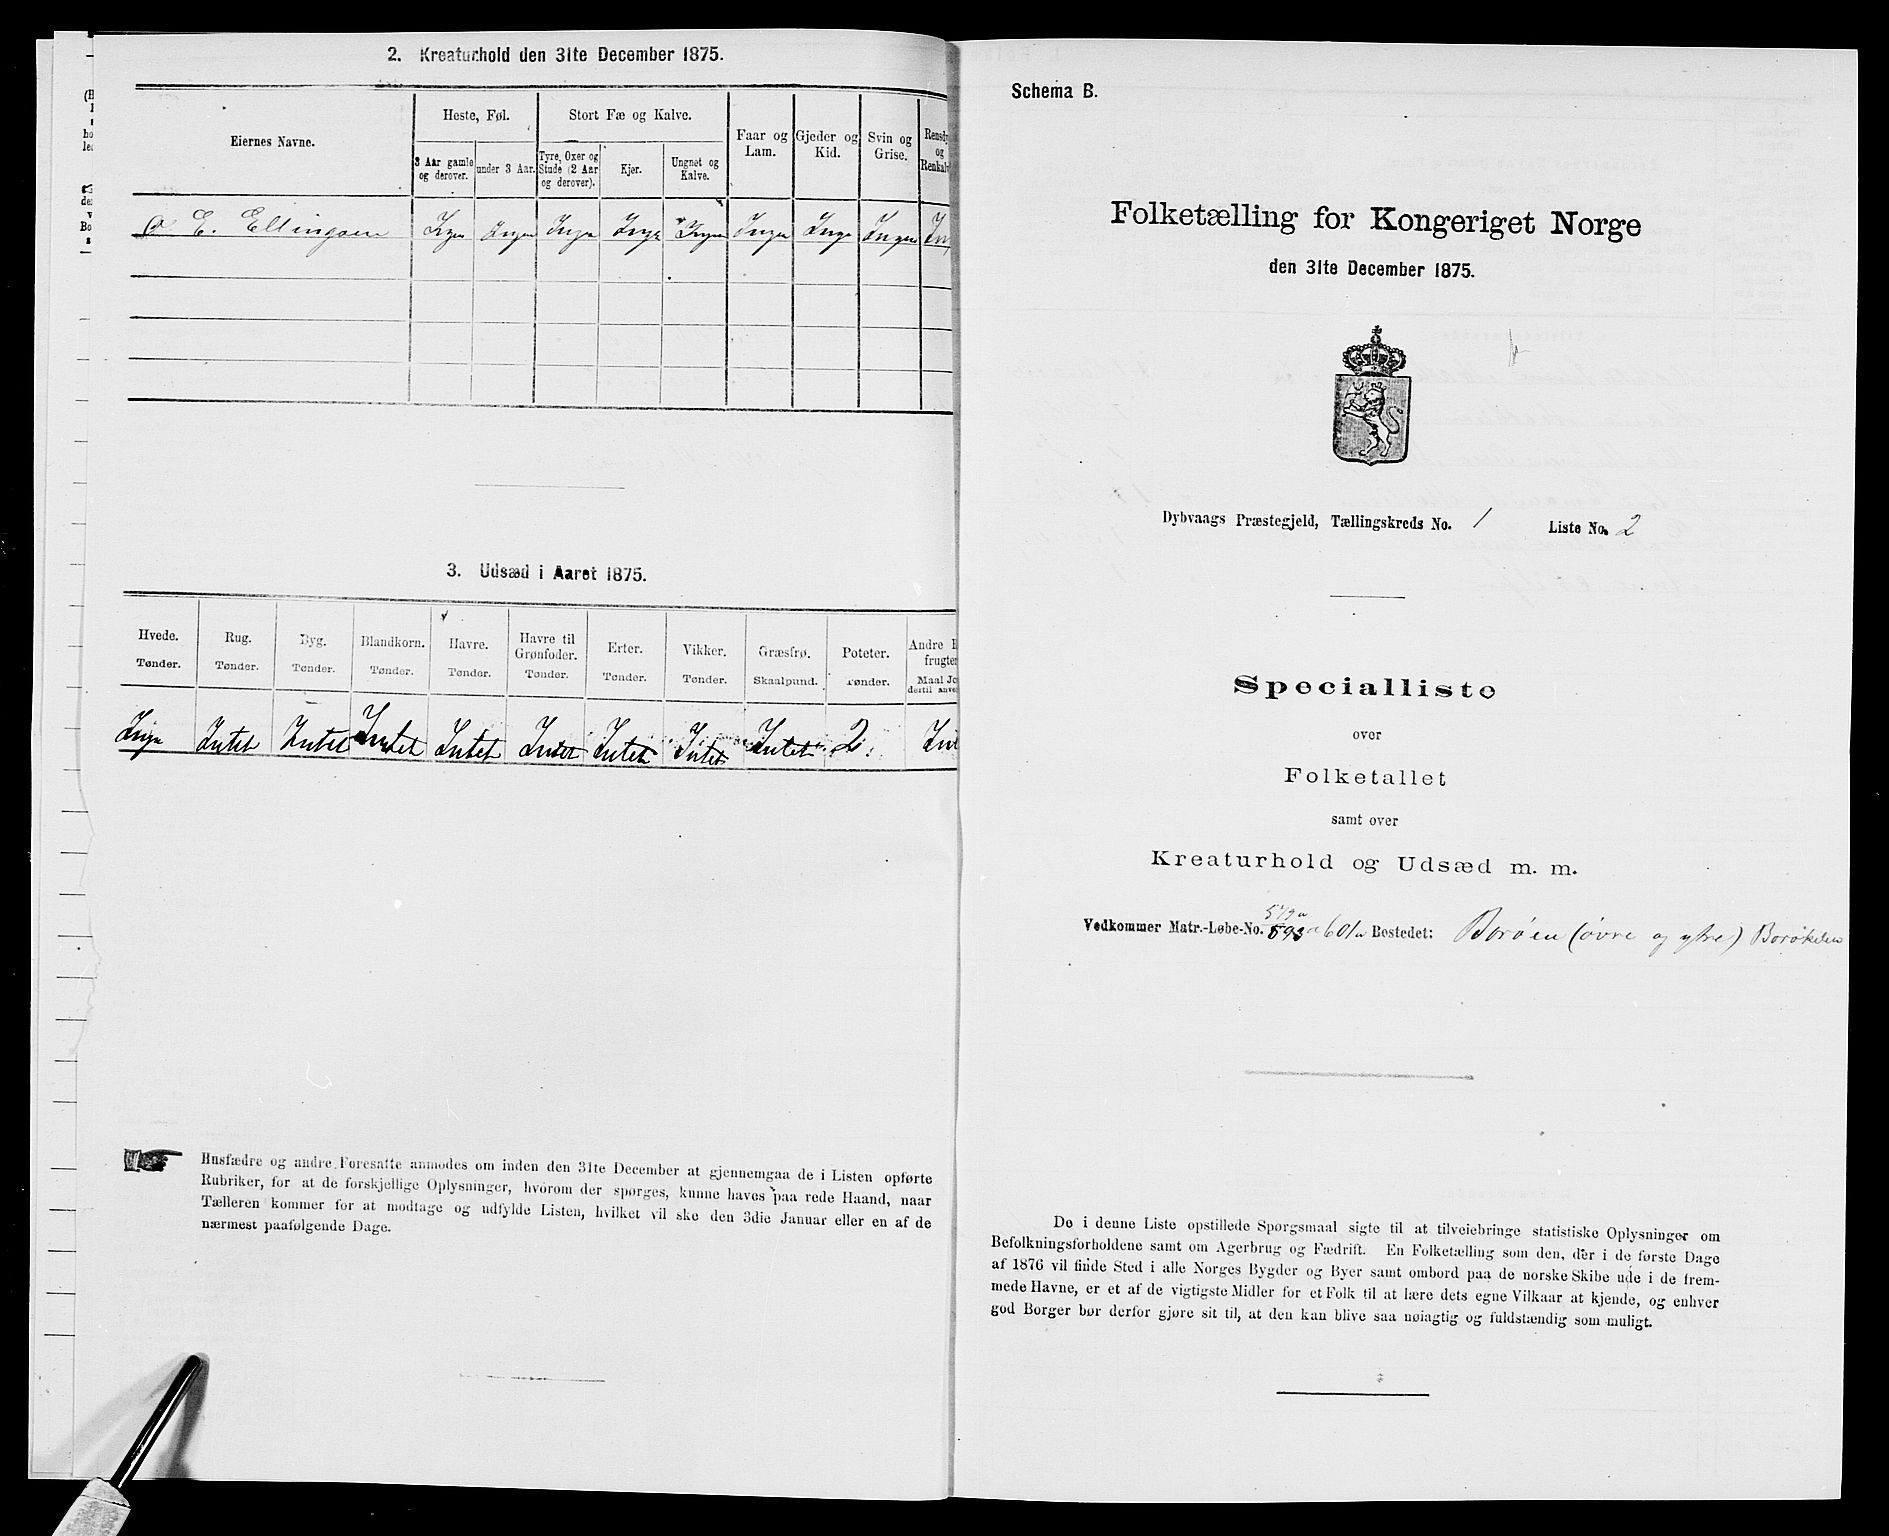 2. Kreaturhold den 31te December 1875.
Eiernes Navne.
Heste, Føl.
Stort Fæ og Kalve.
Faar og Lam.
Gjeder og Kid.
Svin og Grise.
Rensdy
og
Renkalv
3 Aar gamle og derover.
under 3 Aar.
Tyre, Oxer og Stude (2 Aar og derover).
Kjer.
Ungnet og Kalve.
E. Ellingsen Ingen Ingen Ingen Inge Ingen Ingen Inge Ingen In
3. Udsæd i Aaret 1875.
Hvede. Rug. Byg. Blandkorn. Havre. Havre til Grønfoder. Erter. Vikker. Græsfrø. Poteter. Andre
frugter
Tønder. Tønder. Tønder. Tønder. Tønder. Tønder. Tønder. Tønder. Skaalpund. Tønder. Maal Jo
dertil anve
Inge Intet Intet Intet Intet Intet Intet Intet Intet 2 Int
Husfædre og andre Foresatte anmodes om inden den 31te December at gjennemgaa de i Listen opførte
Rubriker, for at de forskjellige Oplysninger, hvorom der spørges, kunne haves paa rede Haand, naar
Tælleren kommer for at modtage og udfylde Listen, hvilket vil ske den 3die Januar eller en af de
nærmest paafølgende Dage.
Schema B.
Folketælling for Kongeriget Norge
den 31te December 1875.
Dybvaags Præstegjeld, Tællingskreds No. 1 Liste No. 2
Specialliste
over
Folketallet
samt over
Kreaturhold og Udsæd m. m.
Vedkommer Matr.-Løbe-No. 593a 601a Bostedet: Borøen (øvre og ytre) Borøkilen
De i denne Liste opstillede Spørgsmaal sigte til at tilveiebringe statistiske Oplysninger om
Befolkningsforholdene samt om Agerbrug og Fædrift. En Folketælling som den, der i de første Dage
af 1876 vil finde Sted i alle Norges Bygder og Byer samt ombord paa de norske Skibe ude i de frem-
mede Havne, er et af de vigtigste Midler for et Folk til at lære dets egne Vilkaar at kjende, og enhver
god Borger bør derfor gjøre sit til, at den kan blive saa nøiagtig og fuldstændig som muligt.